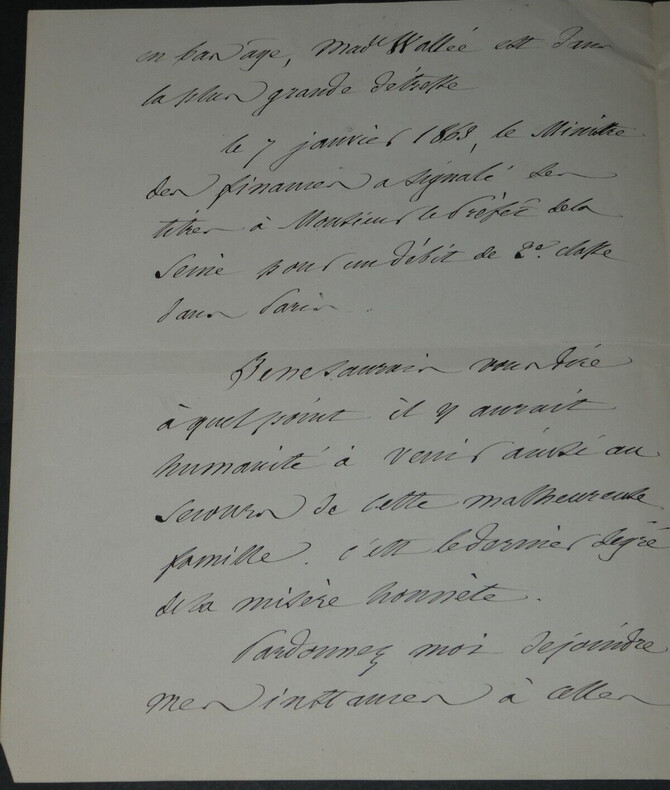 en bas âge, Mad.e Wallée est dans
la plus grande détresse
le 7 janvier 1863, le Ministre
des finances a signalé ses
titres à Monsieur le Préfet de la
Seine pour un débit de 2e classe
dans Paris.
Je ne saurais vous dire
à quel point il y aurait
humanité à venir ainsi au
secours de cette malheureuse
famille. c'est le dernier degré
de la misère honnête.
Pardonnez moi de joindre
mes instances à celles